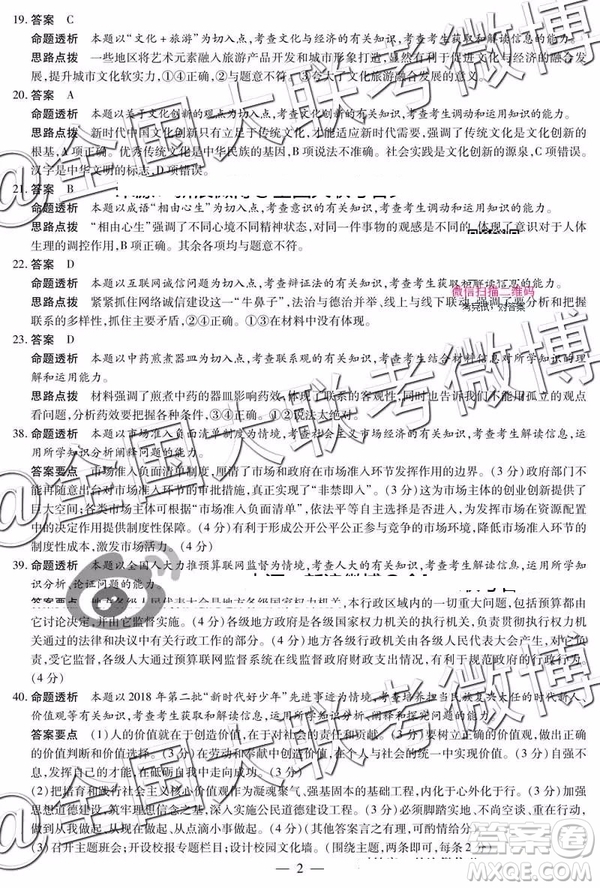 19. 答案 C
命题透析 本题以“文化+旅游”为切入点,考查文化与经济的有关知识,考查考生获取和解读信息的能力。
思路点拨 一些地区将艺术元素融入旅游产品开发和城市形象打造,显然有利于促进文化与经济的融合发
展,提升城市文化软实力,①④正确。②与题意不符。③夸大了文化旅游融合发展的意义。
20. 答案 A
命题透析 本题以关于文化创新的观点为切入点,考查文化创新的有关知识,考查考生调动和运用知识的能力。
思路点拨 新时代中国文化创新只有立足于传统文化,才能适应新时代的需要,强调了传统文化是文化创新
的根基,A项正确。传统文化是中华民族的基因,B项与题意不符。社会实践是文化创新的源泉,C项错误。
汉字是中华文明的标志,D项错误。
21. 答案 B
命题透析 本题以成语“相由心生”为切入点,考查意识的有关知识,考查考生调动和运用知识的能力。
思路点拨 “相由心生”强调了不同心境不同精神状态,对同一件事物的观感是不同的,体现了意识对于人体
生理的调控作用,B项正确。其余各项均与题意不符。
22. 答案 D
命题透析 本题以互联网诚信问题为切入点,考查辩证法的有关知识,考查考生获取和解读信息的能力。
思路点拨 紧紧抓住网络诚信建设这一“牛鼻子”,法治与德治并举,线上与线下
盾和矛盾具有多样性,②④正确。①③在材料中没有体现。
微信扫描二维码
考完试,对答案
23. 答案 D
命题透析 本题以中药煎煮器皿为切入点,考查联系观的有关知识,考查考生结合材料信息对所学知识的理
解和运用能力。
思路点拨 材料强调了煎煮中药的器皿影响药效,体现了联系的客观性;同时也告诉我们不能用孤立的观点
看问题,分析药效要把握各种条件。①②说法太绝对。
38. 命题透析 本题以市场准入负面清单制度为情境,考查社会主义市场经济的有关知识,考查考生解读信息,运
用所学知识分析阐释问题的能力。
答案要点 市场准入负面清单制度,厘清了市场和政府在市场准入环节发挥作用的边界。(3分)政府部门不
能再随意出台对市场准入环节的审批措施,真正实现了“非禁即入”。(3分)这为市场主体的创业创新提供了
巨大空间;各类市场主体依据“市场准入负面清单”,有利于激发市场主体活力,对发挥市场在资源配置
中的决定性作用提供制度性保障。(4分)有利于形成公开公平公正参与竞争的市场环境,降低市场准入环节的
制度性成本。(4分)
39. 命题透析 本题以全国人大力推预算联网监督为情境,考查人大的有关知识,考查考生解读信息,运用所学知
识分析、论证问题的能力。
答案要点 地方各级人民代表大会是地方各级国家权力机关,本行政区域内的一切重大问题,包括预算都由
它讨论决定,并由它监督实施。(4分)各级政府是各级国家权力机关的执行机关,负责贯彻执行国家权力机关
通过的法律和决议中有关行政工作的部分。(4分)地方各级行政机关由各级人民代表大会产生,对它负责,受
它监督。(4分)因此,各级人大通过预算联网监督系统在线监督政府财政支出是履行自身职责的表现。
(4分)
40. 命题透析 本题以2018年第二批“新时代好少年”先进事迹为情境,考查培养担当民族复兴大任的时代新人、
价值观等的有关知识,考查考生获取和解读信息、运用知识探究问题的能力。
答案要点 (1)人的价值就在于创造价值,在于对社会的责任和贡献。(3分)要树立正确的价值观,作出正确
的价值判断和价值选择。(3分)在劳动和奉献中创造价值,在个人与社会的统一中实现价值。(3分)要坚定
理想信念,在砥砺自我中走向成功。(3分)
(2)把培育和践行社会主义核心价值观作为凝魂聚气、强基固本的基础工程,内化于心外化于行。(4分)加强
思想道德建设,筑牢理想信念之基,深入实施公民道德建设工程。(3分)必须脚踏实地、不尚空谈、重在行动,
从我做起、从现在做起,从点滴小事做起。(3分)(其他答案言之成理,可酌情给分)
(3)召开主题班会;开设校报专题栏目;设计校园文化墙。(围绕主题,两条即可,每条2分)
— 2 —
@全国大联考微博
@全国大联考微博
@全国大联考微博
答案圈
MXQE.COM